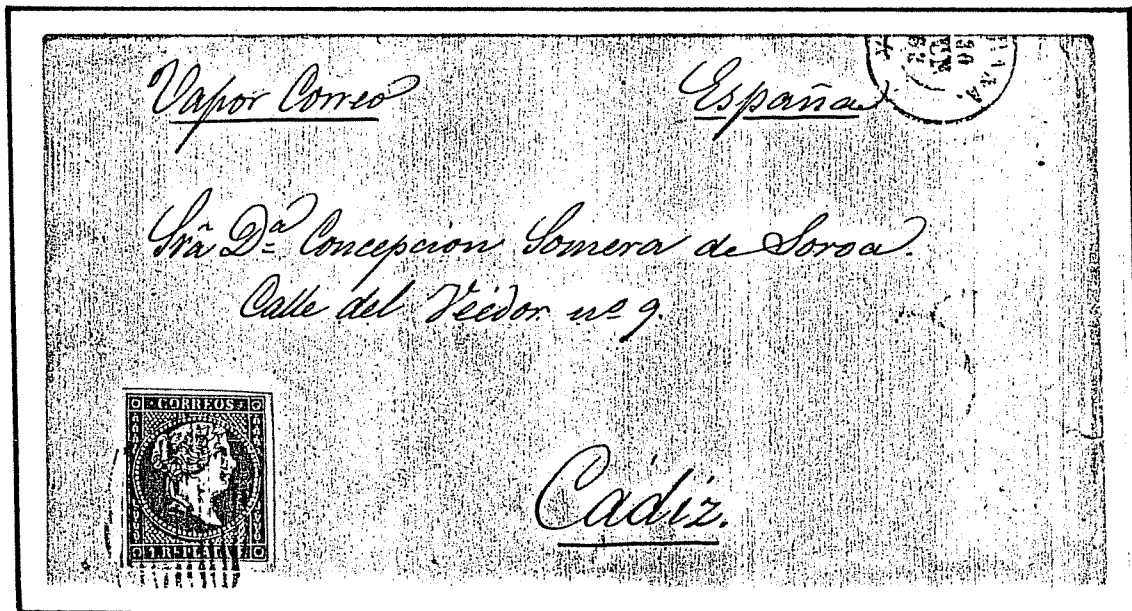 Vapor Correo España
Srã Dª Concepcion Somera de Soroa.
Calle del Veedor nº 9.
CORREOS
Cádiz.